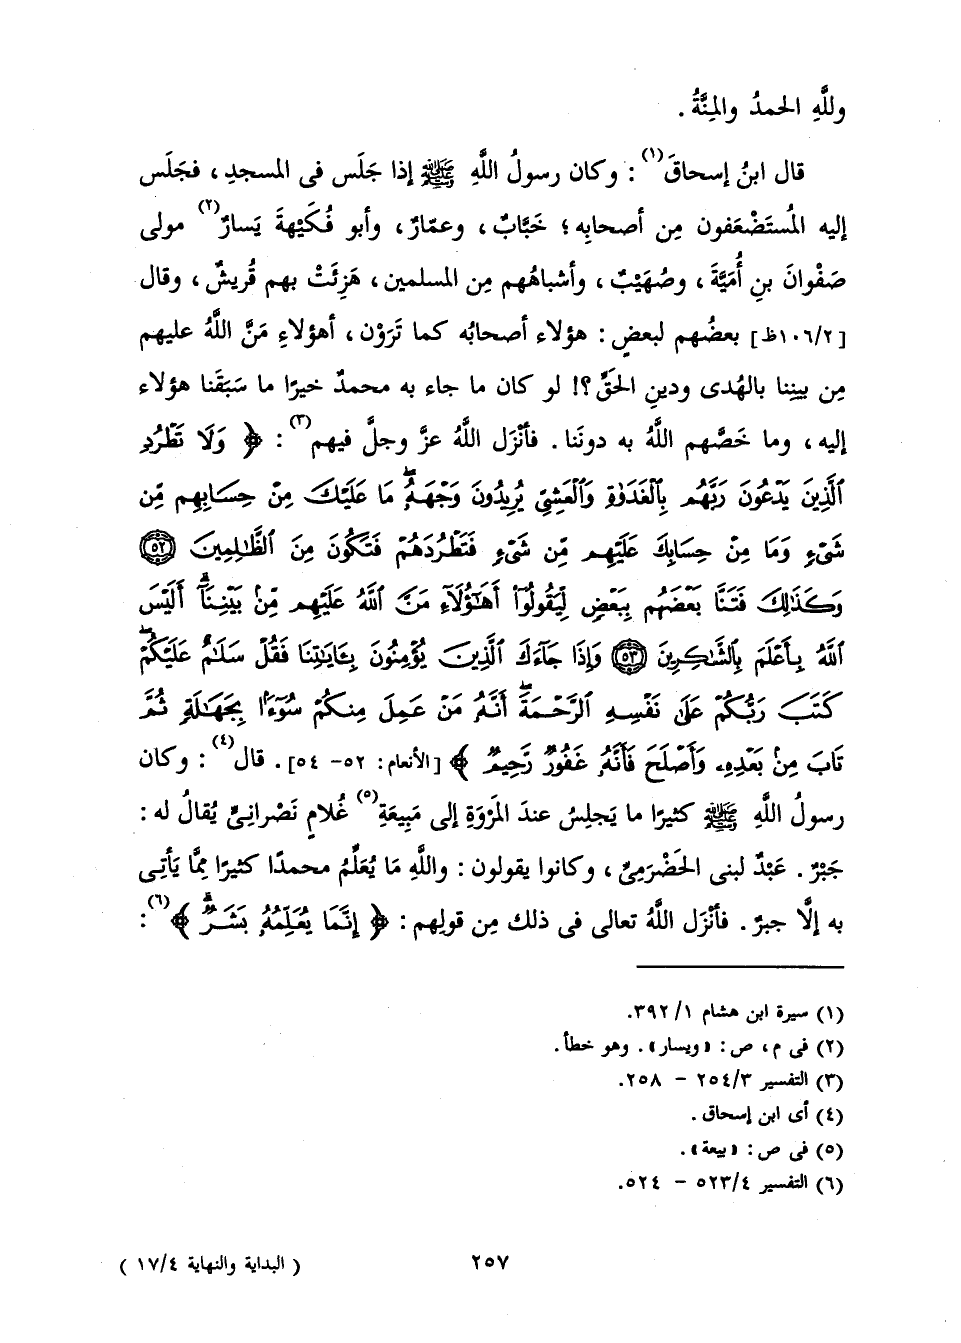 وللَّهِ الحمدُ والمِنَّةُ .
قال ابنُ إسحاقَ(١) : وكان رسولُ اللَّهِ ﷺ إذا جَلَس فى المسجدِ ، فجَلَس
إليه المُستَضْعَفون مِن أصحابِه ؛ خَبَّابٌ ، وعمّارٌ ، وأبو فُكَيْهةَ يَسارٌ(٢) مولى
صَفْوانَ بنِ أُمَيَّةَ ، وصُهَيْبٌ ، وأشباهُهم مِن المسلمين ، هَزِئَتْ بهم قُريشٌ ، وقال
[١٠٦/٢ظ] بعضُهم لبعضٍ : هؤلاء أصحابُه كما تَرَوْن ، أهؤلاءِ مَنَّ اللَّهُ عليهم
مِن بيننا بالهُدى ودينِ الحَقِّ ؟! لو كان ما جاء به محمدٌ خيرًا ما سَبَقَنا هؤلاء
إليه ، وما خَصَّهم اللَّهُ به دونَنا . فأنْزَل اللَّهُ عزَّ وجلَّ فيهم(٣) : ﴿ وَلَا تَطْرُدِ
الَّذِينَ يَدْعُونَ رَبَّهُم بِالْغَدَوٰةِ وَالْعَشِيِّ يُرِيدُونَ وَجْهَهُۥۖ مَا عَلَيْكَ مِنْ حِسَابِهِم مِّن
شَىْءٍ وَمَا مِنْ حِسَابِكَ عَلَيْهِم مِّن شَىْءٍ فَتَطْرُدَهُمْ فَتَكُونَ مِنَ الظَّٰلِمِينَ ۝٥٢
وَكَذَٰلِكَ فَتَنَّا بَعْضَهُم بِبَعْضٍ لِّيَقُولُوٓا۟ أَهَٰٓؤُلَآءِ مَنَّ اللَّهُ عَلَيْهِم مِّنۢ بَيْنِنَآۗ أَلَيْسَ
اللَّهُ بِأَعْلَمَ بِالشَّٰكِرِينَ ۝٥٣ وَإِذَا جَآءَكَ الَّذِينَ يُؤْمِنُونَ بِـَٔايَٰتِنَا فَقُلْ سَلَٰمٌ عَلَيْكُمْۖ
كَتَبَ رَبُّكُمْ عَلَىٰ نَفْسِهِ الرَّحْمَةَۖ أَنَّهُۥ مَنْ عَمِلَ مِنكُمْ سُوٓءًۢا بِجَهَٰلَةٍ ثُمَّ
تَابَ مِنۢ بَعْدِهِۦ وَأَصْلَحَ فَأَنَّهُۥ غَفُورٌ رَّحِيمٌ ﴾ [الأنعام: ٥٢- ٥٤] . قال(٤) : وكان
رسولُ اللَّهِ ﷺ كثيرًا ما يَجلِسُ عندَ المَرْوَةِ إلى مَبِيعَةِ(٥) غُلامٍ نَصْرانىٍّ يُقالُ له :
جَبْرٌ . عَبْدٌ لبنى الحَضْرَمِىِّ ، وكانوا يقولون : واللَّهِ مَا يُعَلِّمُ محمدًا كثيرًا مِمَّا يَأتِى
به إلَّا جبرٌ . فأنْزَل اللَّهُ تعالى فى ذلك مِن قولِهم : ﴿ إِنَّمَا يُعَلِّمُهُۥ بَشَرٌۗ ﴾(٦) :
(١) سيرة ابن هشام ١/ ٣٩٢.
(٢) فى م، ص : «ويسار» . وهو خطأ .
(٣) التفسير ٢٥٤/٣ - ٢٥٨.
(٤) أى ابن إسحاق .
(٥) فى ص : «بيعة» .
(٦) التفسير ٥٢٣/٤ - ٥٢٤.
٢٥٧
( البداية والنهاية ١٧/٤ )